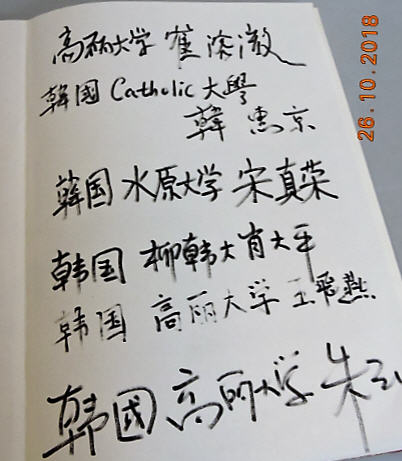 高丽大学 崔溶澈
韓國 Catholic 大學
韓 惠京
韓国 水原大学 宋真荣
韩国 柳韩大 肖大平
韩国 高丽大学 王飛燕
韓國 高丽大学 朱
26.10.2018